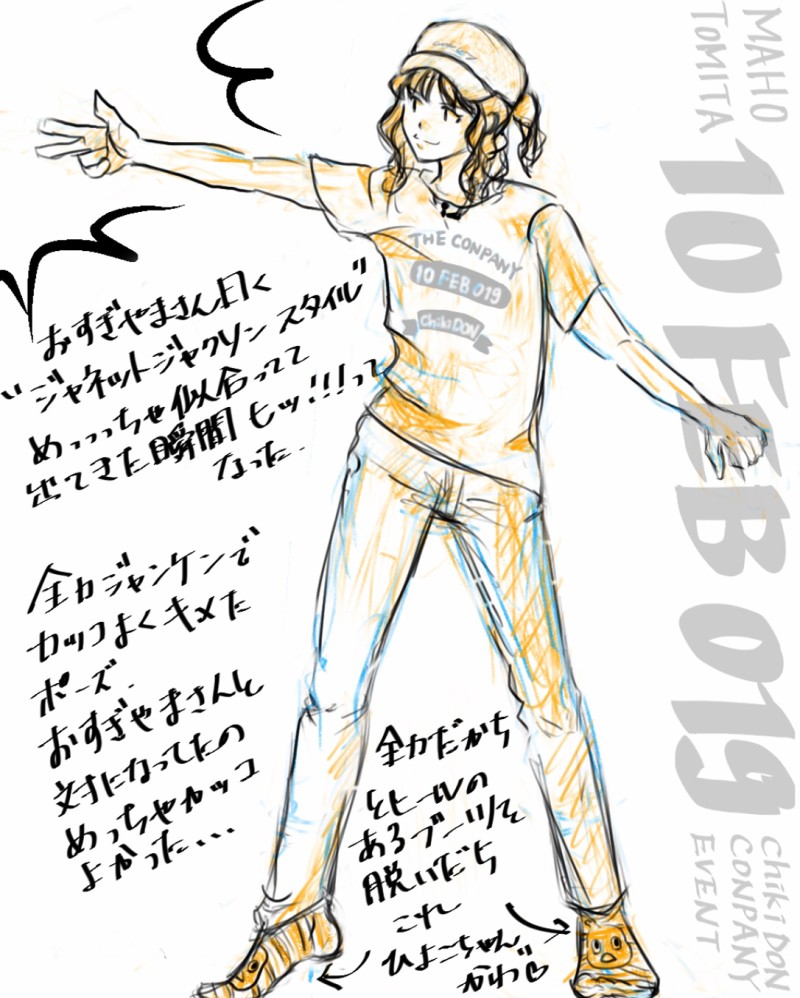 MAHO
TOMITA
10 FEB 019
Chiki DON
CONPANY
EVENT
THE CONPANY
10 FEB 019
Chiki DON
おすぎやまさん曰く
"ジャネットジャクソンスタイル"
めっっっちゃ似合ってて
出てきた瞬間もッ!!!って
なった.
全力ジャンケンで
カッコよくキメた
ポーズ.
おすぎやまさんと
対になってたの
めっちゃカッコ
よかった...
全力だから
とヒールの
あるブーツを
脱いだら
これ
ひよこちゃん
かわ♡